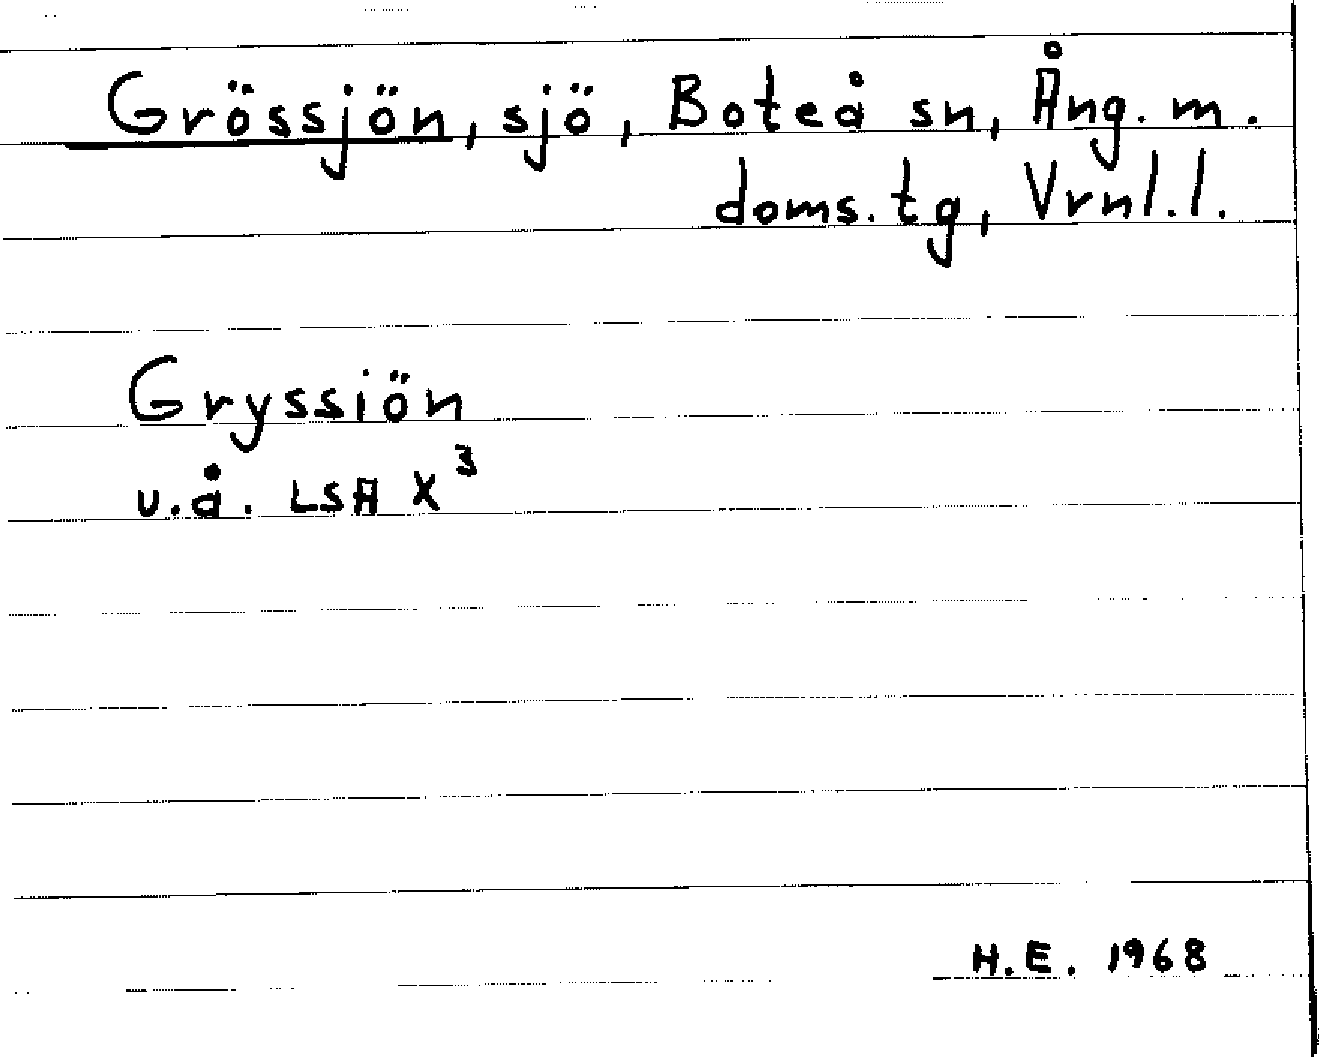 Grössjön, sjö, Boteå sn, Ång. m.
doms. tg, Vrnl. l.
Gryssiön
u.å. LSA X³
H.E. 1968